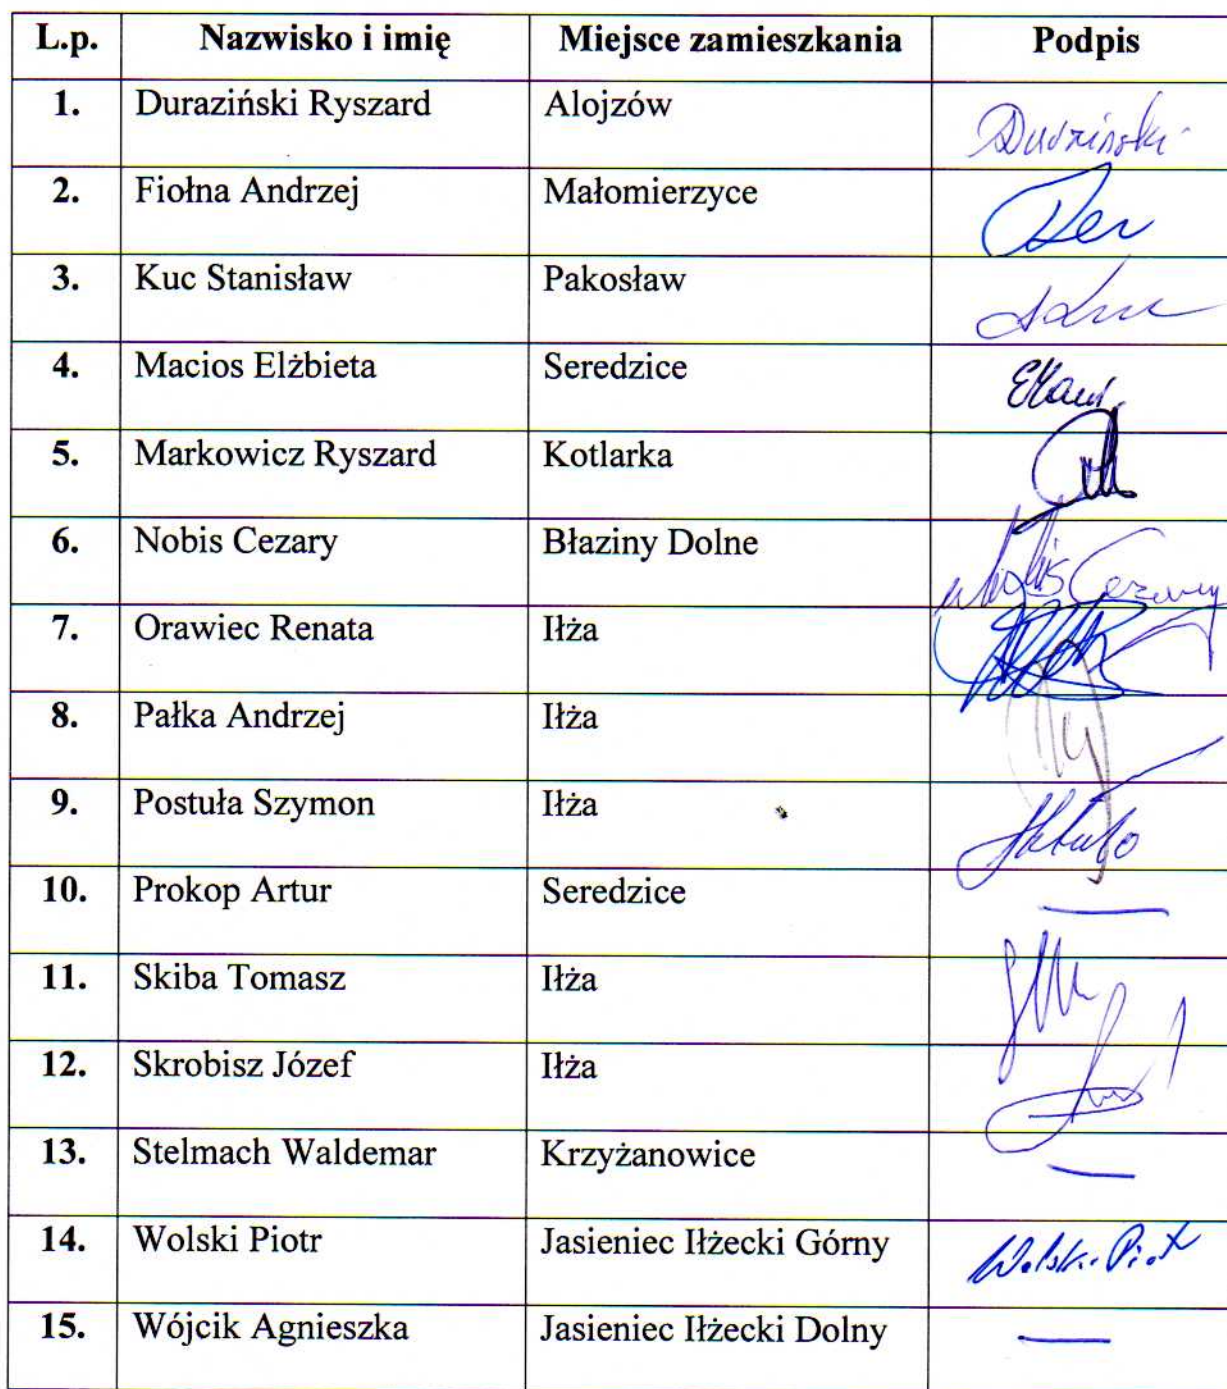 L.p. Nazwisko i imię Miejsce zamieszkania Podpis
1. Duraziński Ryszard Alojzów
2. Fiołna Andrzej Małomierzyce
3. Kuc Stanisław Pakosław
4. Macios Elżbieta Seredzice
5. Markowicz Ryszard Kotlarka
6. Nobis Cezary Błaziny Dolne Nobis Cezary
7. Orawiec Renata Iłża
8. Pałka Andrzej Iłża
9. Postuła Szymon Iłża
10. Prokop Artur Seredzice —
11. Skiba Tomasz Iłża
12. Skrobisz Józef Iłża
13. Stelmach Waldemar Krzyżanowice —
14. Wolski Piotr Jasieniec Iłżecki Górny Wolski Piotr
15. Wójcik Agnieszka Jasieniec Iłżecki Dolny —